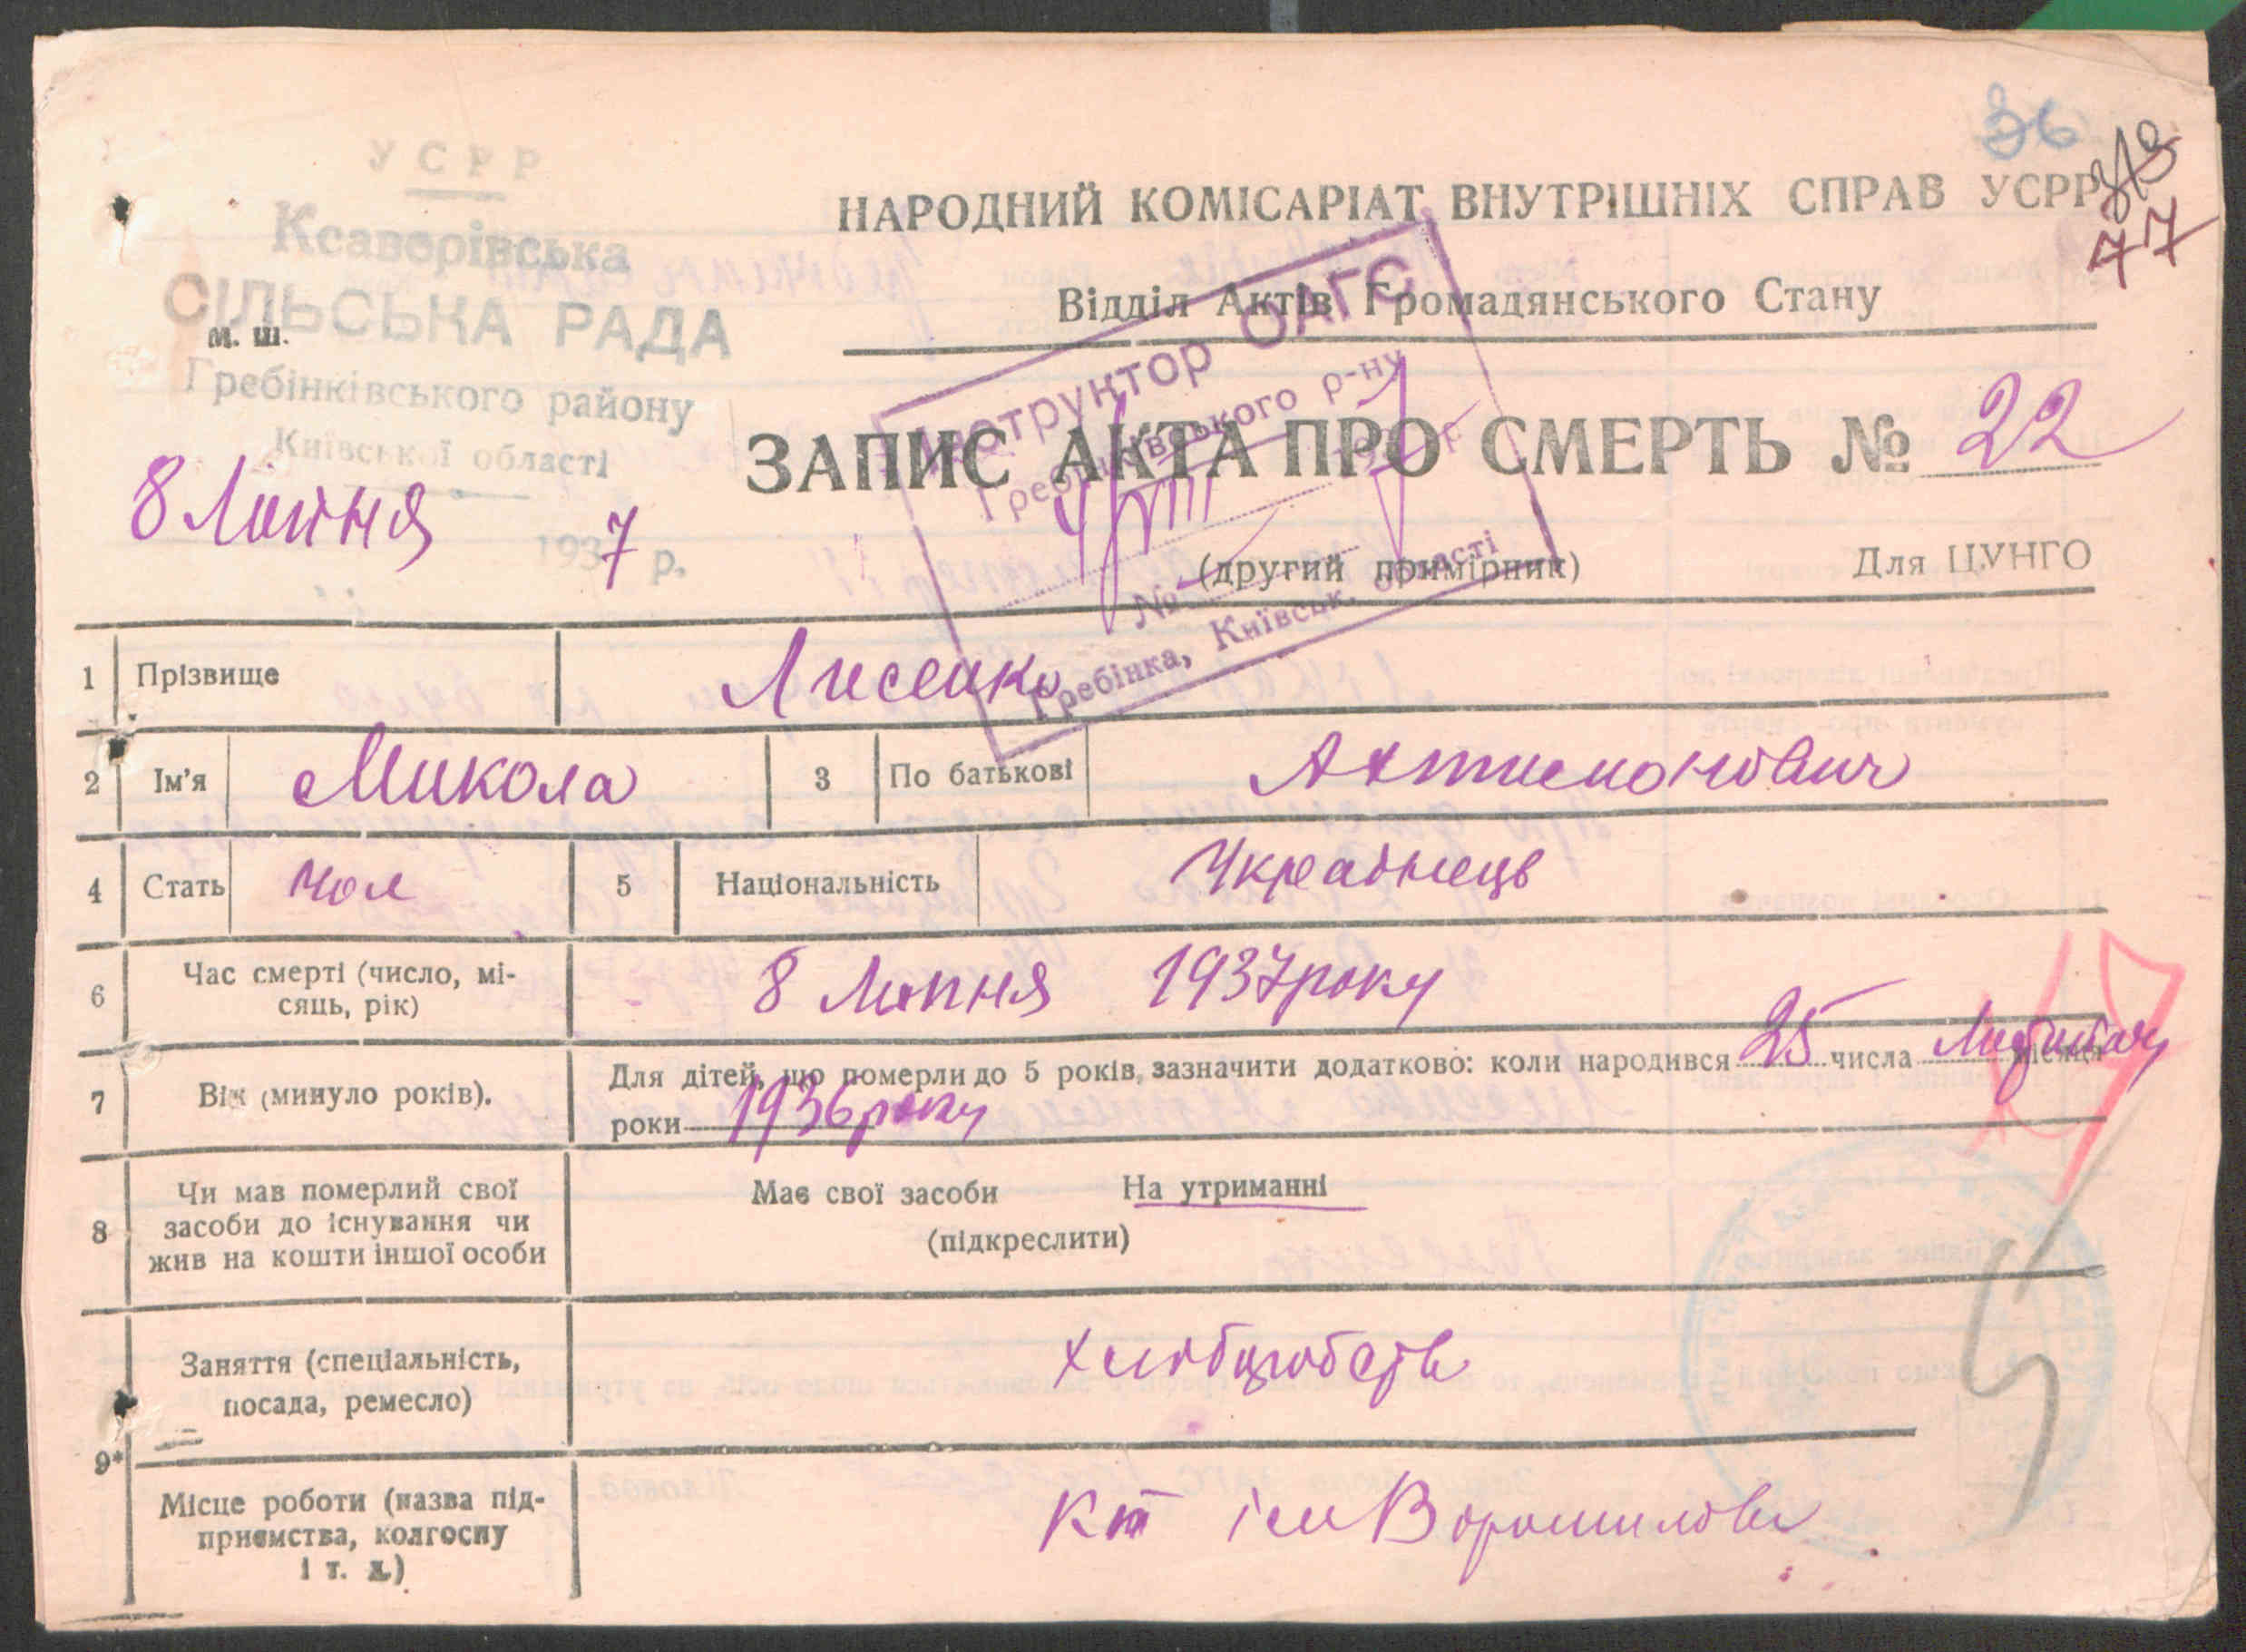 36
3/9
77
УСРР
Ксаверівська
СІЛЬСЬКА РАДА
м. ш.
Гребінківського району
Київської області
8 Липня 1937 р.
НАРОДНИЙ КОМІСАРІАТ ВНУТРІШНІХ СПРАВ УСРР
Відділ Актів Громадянського Стану
Інструктор ОАГС
Гребінківського р-ну
№
Гребінка, Київськ. області
ЗАПИС АКТА ПРО СМЕРТЬ № 22
(другий примірник)
Для ЦУНГО
1 Прізвище Лисенко
2 Ім'я Микола 3 По батькові
4 Стать чол 5 Національність Українець
6 Час смерті (число, мі-
сяць, рік) 8 Липня 1937 року
7 Вік (минуло років). Для дітей, що померли до 5 років, зазначити додатково: коли народився 25 числа місяця
роки 1936 року
8 Чи мав померлий свої
засоби до існування чи
жив на кошти іншої особи
Має свої засоби На утриманні
(підкреслити)
9* Заняття (спеціальність,
посада, ремесло)
Місце роботи (назва під-
приємства, колгоспу
і т. д.)
Кт ім Ворошилова